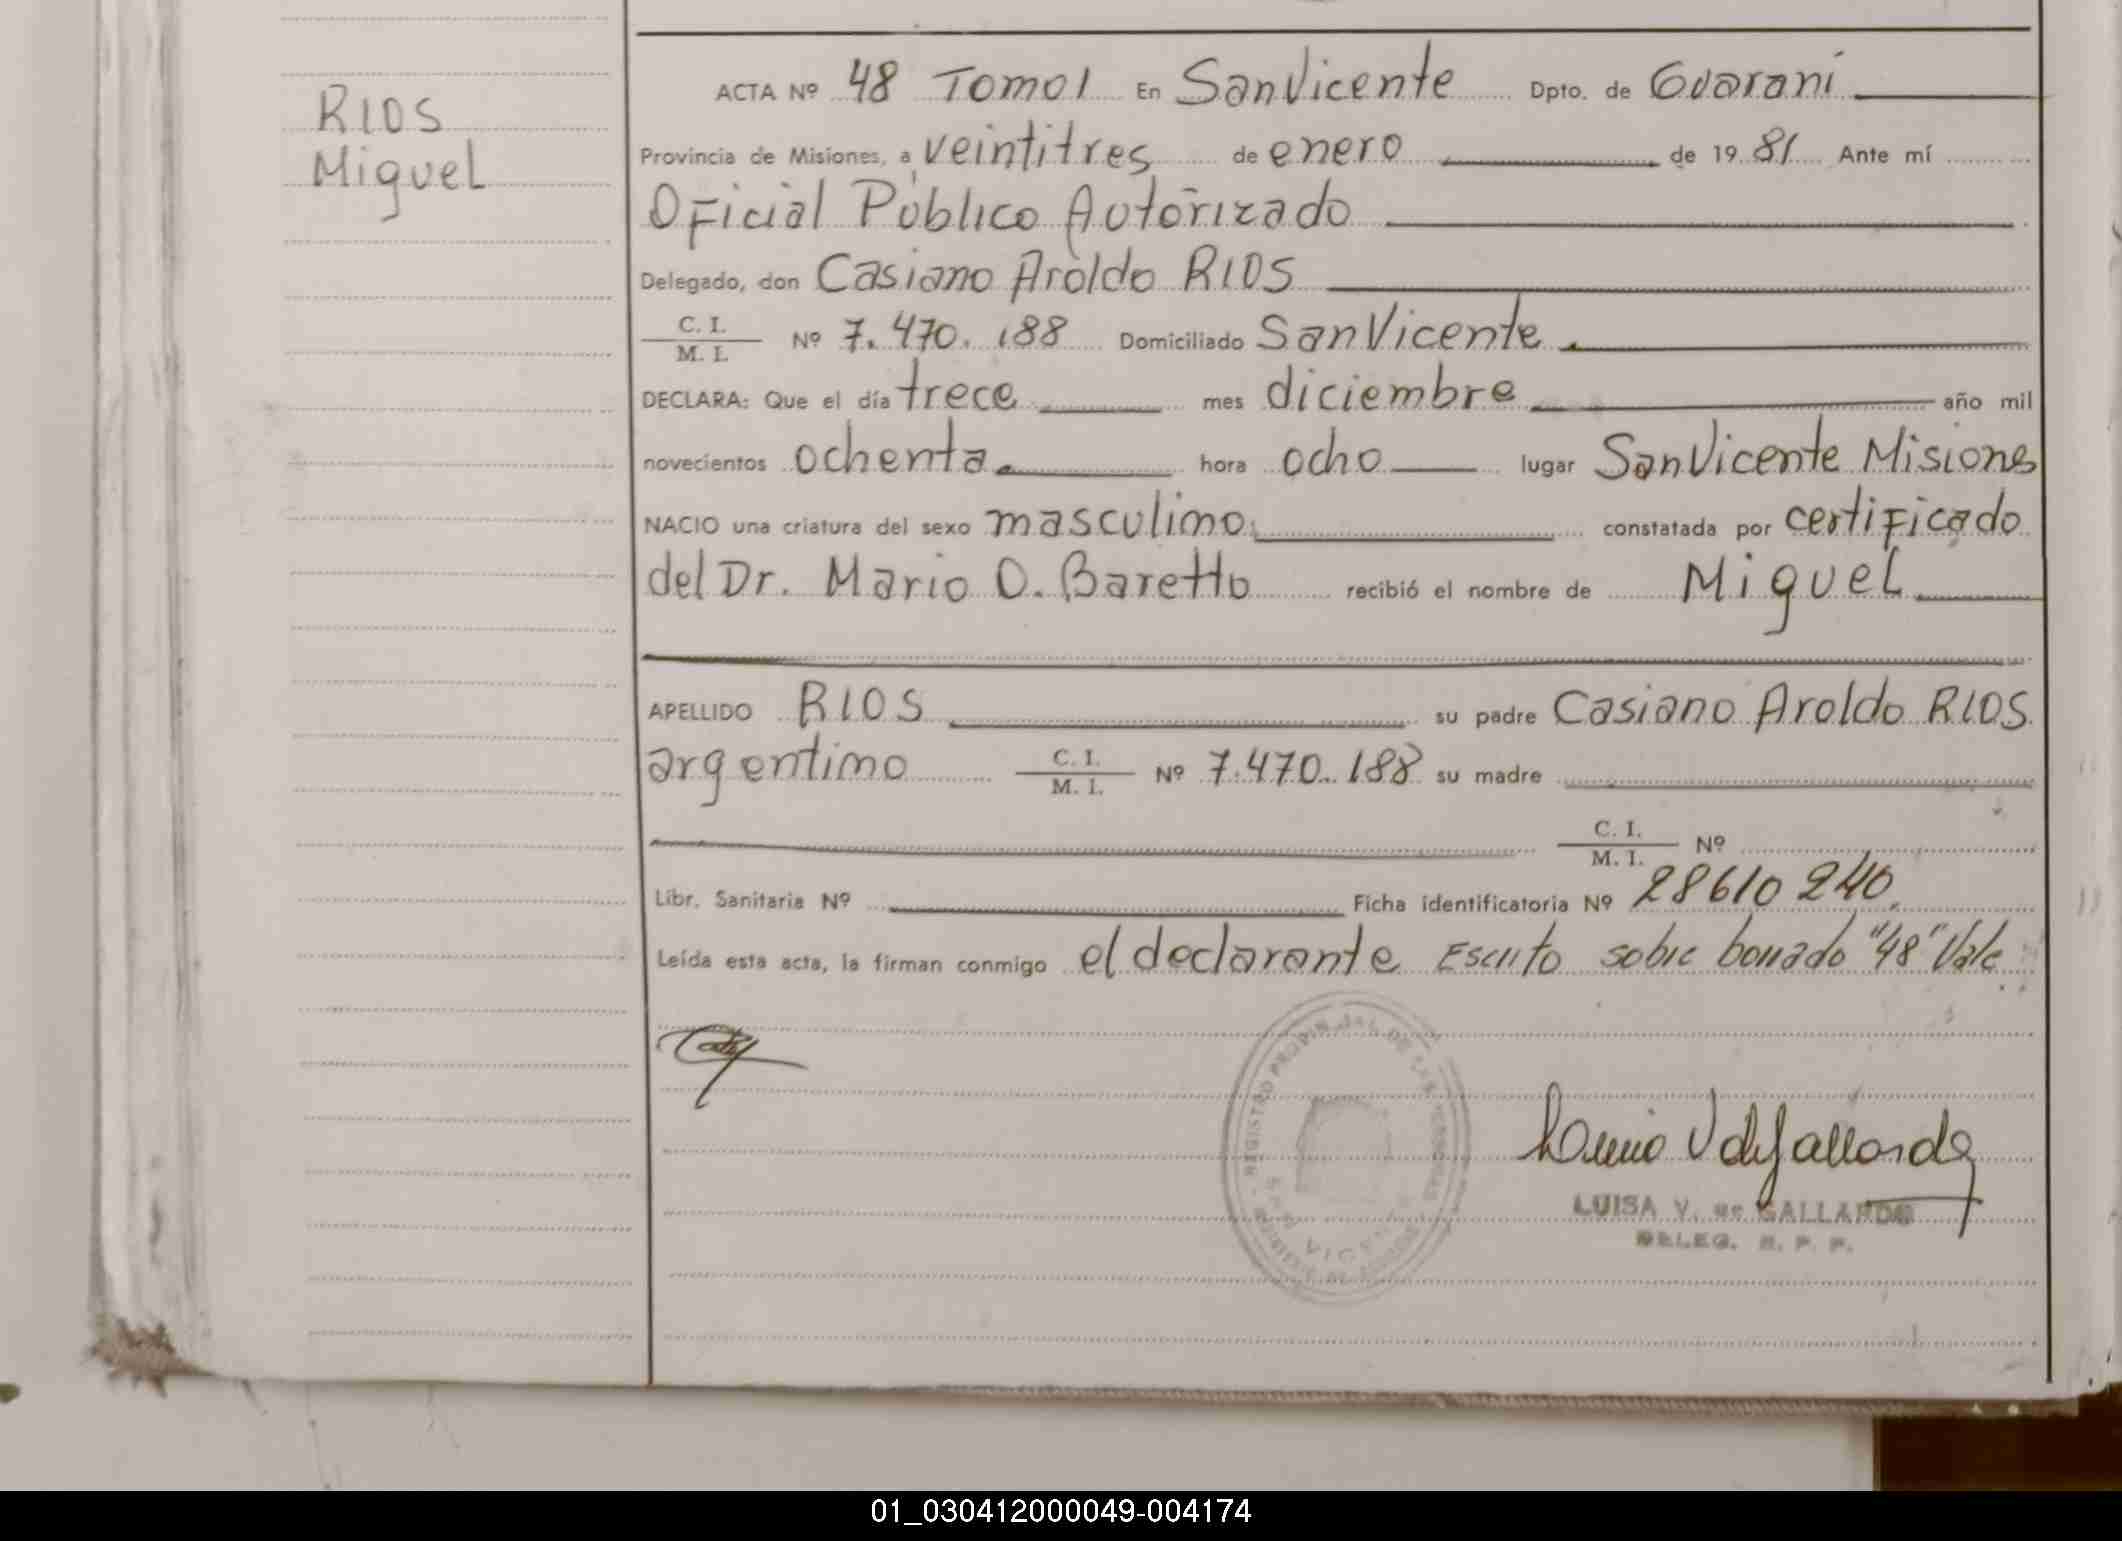 RIOS
Miguel
ACTA Nº 48 Tomo 1 En San Vicente Dpto. de Guaraní
Provincia de Misiones, a veintitres de enero de 1981 Ante mí
Oficial Público Autorizado
Delegado, don Casiano Aroldo RIOS
C. I.
M. I. Nº 7.470.188 Domiciliado San Vicente
DECLARA: Que el día trece mes diciembre año mil
novecientos ochenta hora ocho lugar San Vicente Misiones
NACIO una criatura del sexo masculino constatada por certificado
del Dr. Mario O. Baretto recibió el nombre de Miguel
APELLIDO RIOS su padre Casiano Aroldo RIOS
argentino C. I. M. I. Nº 7.470.188 su madre
C. I. M. I. Nº
Libr. Sanitaria Nº Ficha identificatoria Nº 28610240
Leída esta acta, la firman conmigo el declarante Escrito sobre borrado "48" Vale
REGISTRO PROVINCIAL DE LAS PERSONAS
SAN VICENTE
LUISA V. de GALLARDO
DELEG. R. P. P.
01_030412000049-004174